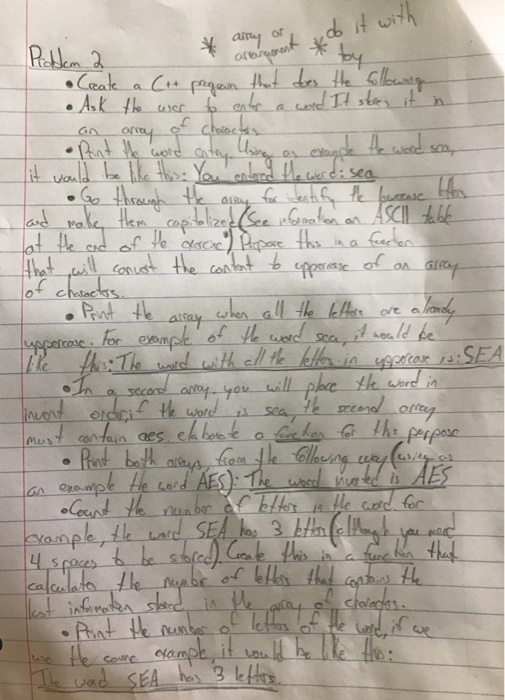 * array or arrangement * do it with
toy
Problem 2
• Create a C++ program that does the following
• Ask the user to enter a word It stores it in
an array of characters
• Print the word entry, Using as example the word sea,
it would be like this: You entered the word: sea
• Go through the array for identify the lowercase letters
and make them capitalized (See information on ASCII table
at the end of the exercise) Prepare this in a function
that will convert the content to uppercase of an array
of characters.
• Print the array when all the letters are already
uppercase. For example of the word sea, it would be
like this: The word with all the letter in uppercase is: SEA
• In a second array, you will place the word in
invent order; if the word is sea, the second array
must contain aes, elaborate a function for this purpose
• Print both arrays, from the following way (using as
an example the word AES): The word inverted is AES
• Count the number of letters in the word, for
example, the word SEA has 3 letters (although you need
4 spaces to be stored). Create this in a function that
calculates the number of letters that contains the
last information stored in the array of characters.
• Print the number of letters of the word, if we
use the same example, it would be like this:
The word SEA has 3 letters.